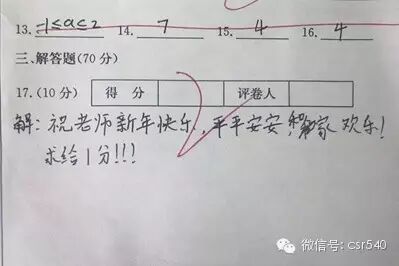 13. -1≤a≤2 14. 7 15. 4 16. 4
三、解答题(70分)
17.(10分) 得 分 评卷人
解:祝老师新年快乐,平平安安,和家欢乐!
求给1分!!!
微信号: csr540